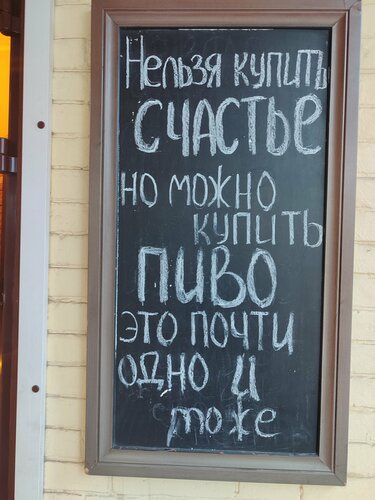 Нельзя купить
счастье
но можно
купить
пиво
это почти
одно и
тоже